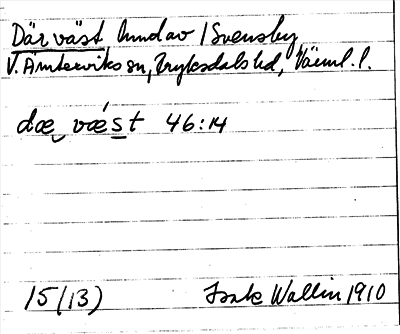 Där väst hmd av 1 Svensby
V. Ämterviks sn, Fryksdals hd, Värml. l.
dœ‿ vœ́st 46:14
15(13) Isak Wallin 1910